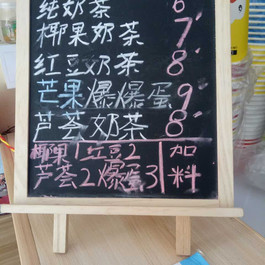 纯奶茶 6
椰果奶茶 7
红豆奶茶 8
芒果爆爆蛋 9
芦荟奶茶 8
椰果1 红豆2 加
芦荟2 爆蛋3 料